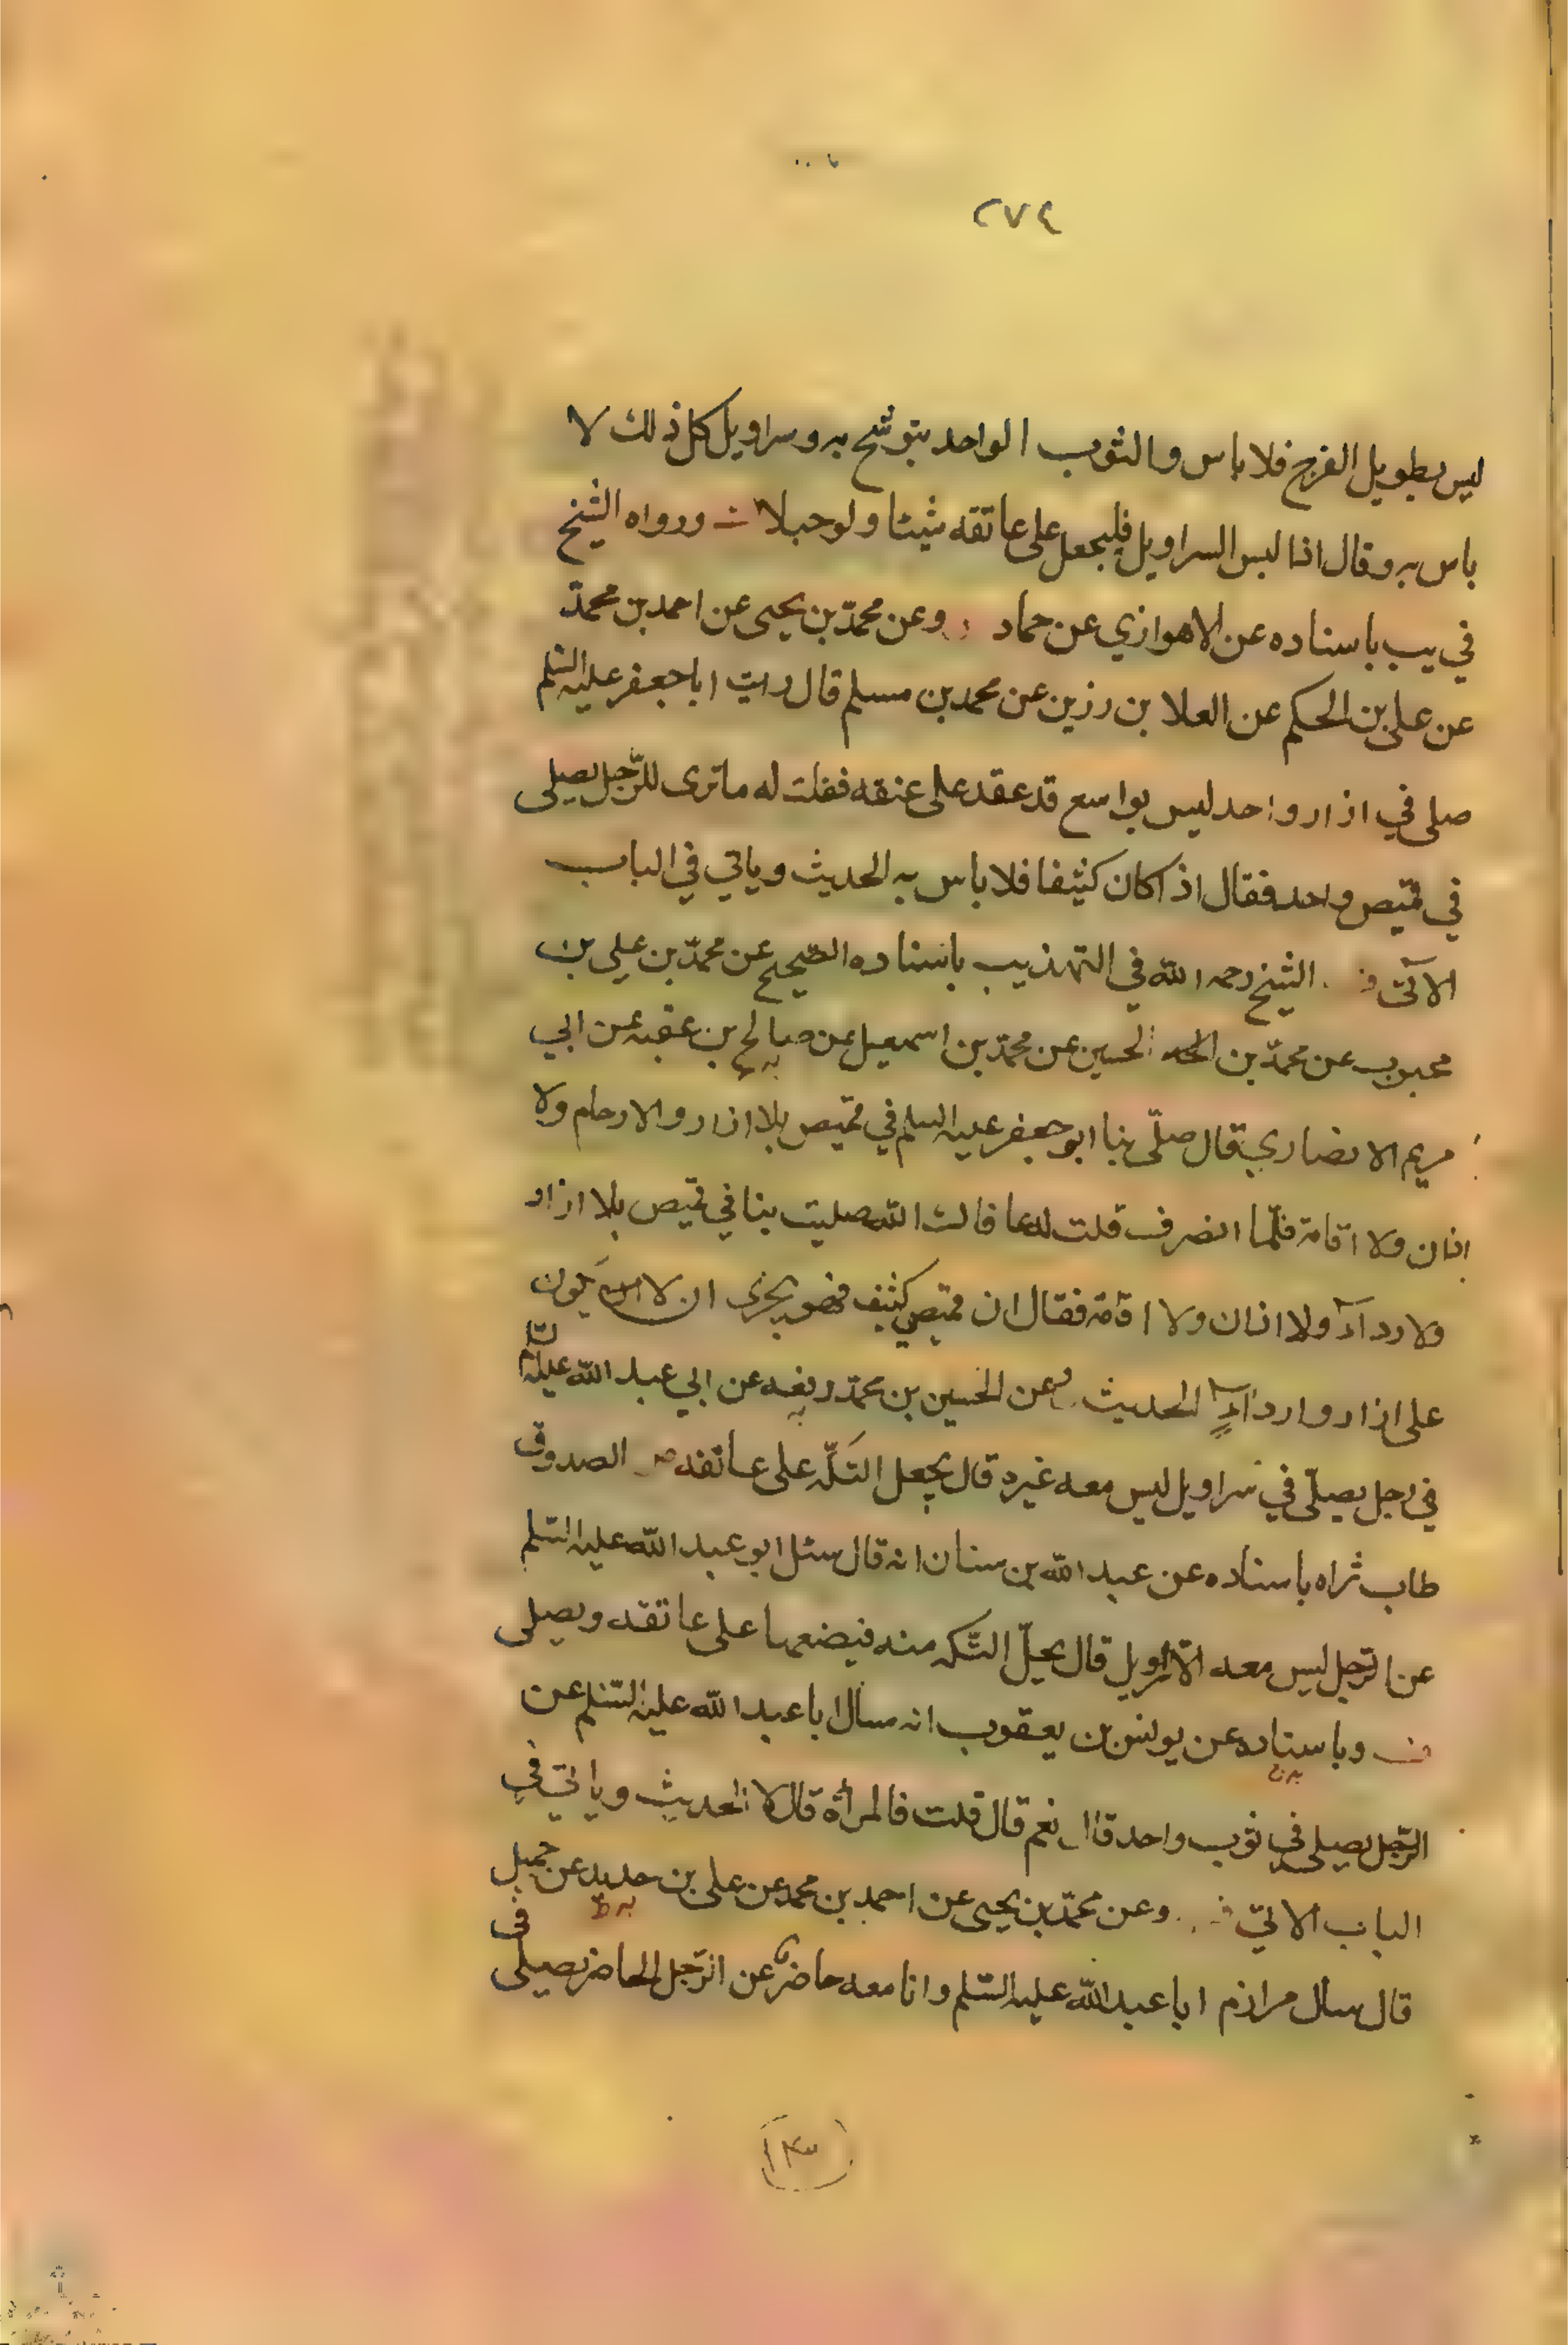 ٢٧٤
ليس بطويل الفرج فلا باس والثوب الواحد يتوشح به وسراويل كل ذلك لا
باس به وقال اذا لبس السراويل فليجعل على عاتقه شيئا ولو حبلا ورواه الشيخ
في يب باسناده عن الاهوازي عن حماد وعن محمّد بن يحيى عن احمد بن محمّد
عن على بن الحكم عن العلا بن رزين عن محمد بن مسلم قال رايت ابا جعفر عليه السّلم
صلى في ازار واحد ليس بواسع قد عقد على عنقه فقلت له ما ترى للرّجل يصلى
في قميص واحد فقال اذا كان كثيفا فلا باس به الحديث وياتي في الباب
الآتى الشيخ رحمه الله في التهذيب باسناده الصّحيح عن محمّد بن علي بن
محبوب عن محمّد بن الحسين عن محمّد بن اسمعيل عن صالح بن عقبه عن ابي
مريم الانصاري قال صلّى بنا ابو جعفر عليه السلم في قميص بلا ازار ولا رداء ولا
اذان ولا اقامة فلمّا انصرف قلت له عافاك الله صليت بنا في قميص بلا ازار
ولا رداء ولا اذان ولا اقامة فقال ان قميصي كثيف فهو يجزى ان لا يكون
على ازار ورداء الحديث وعن الحسين بن محمّد رفعه عن ابي عبد الله عليه السّلم
في رجل يصلّى في سراويل ليس معه غيره قال يجعل التكّه على عاتقه الصدوق
طاب ثراه باسناده عن عبد الله بن سنان انه قال سئل ابو عبد الله عليه السّلم
عن الرّجل ليس معه الّا سراويل قال يحلّ التّكه منه فيضعها على عاتقه ويصلى
وباسناده عن يونس بن يعقوب انه سال ابا عبد الله عليه السّلم عن
الرّجل يصلى في ثوب واحد قال نعم قال قلت فالمرأة قال لا الحديث وياتي في
الباب الاتي وعن محمّد بن يحيى عن احمد بن محمد عن على بن حديد عن جميل
قال سال مرازم ابا عبد الله عليه السّلم وانا معه حاضر عن الرّجل الحاضر يصلّى في
١٣